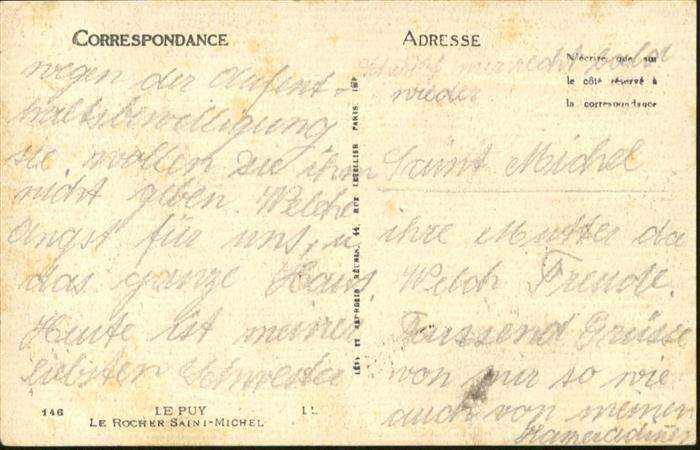 CORRESPONDANCE
wegen der Aufent-
haltsbewilligung
sie wollen sie ihm
nicht geben. Welche
Angst für uns, u
das ganze Haus.
Heute ist meiner
liebsten Schwester
146 LE PUY LL
LE ROCHER SAINT-MICHEL
LÉVY ET NEURDEIN RÉUNIS, 44, RUE LETELLIER PARIS IMP
ADRESSE
N'écrire que sur
le côté réservé à
la correspondance
mir recht bald
wieder
Saint Michel
ihre Mutter da
Welch Freude.
Tausend Grüsse
von mir so wie
auch von meinen
Kameradinen